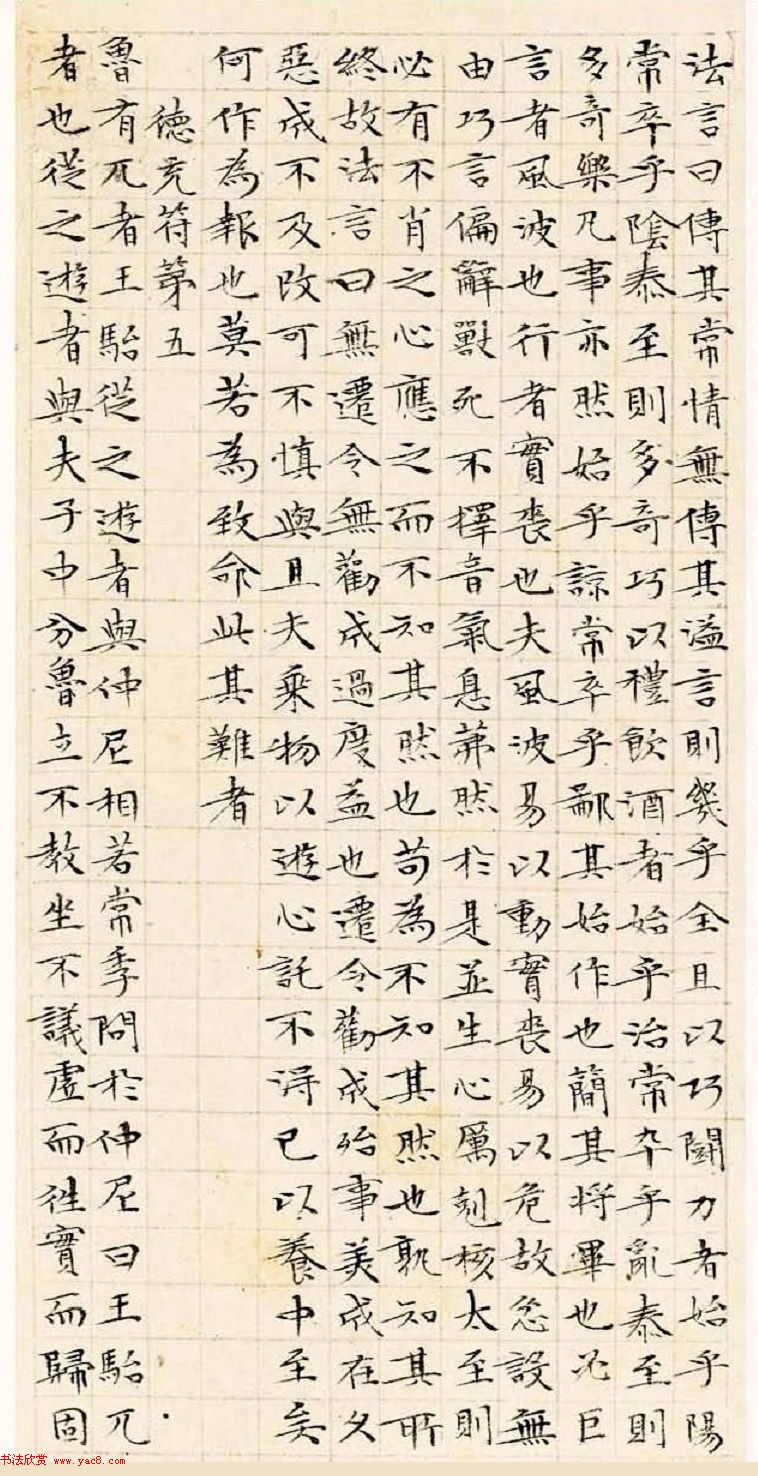 法言曰傳其常情無傳其溢言則幾乎全且以巧鬭力者始乎陽
常卒乎陰泰至則多奇巧以禮飲酒者始乎治常卒乎亂泰至則
多奇樂凡事亦然始乎諒常卒乎鄙其始作也簡其將畢也必巨
言者風波也行者實喪也夫風波易以動實喪易以危故忿設無
由巧言偏辭獸死不擇音氣息茀然於是並生心厲剋核太至則
必有不肖之心應之而不知其然也苟為不知其然也孰知其所
終故法言曰無遷令無勸成過度益也遷令勸成殆事美成在久
惡成不及改可不慎與且夫乘物以遊心託不得已以養中至矣
何作為報也莫若為致命此其難者
德充符第五
魯有兀者王駘從之遊者與仲尼相若常季問於仲尼曰王駘兀
者也從之遊者與夫子中分魯立不教坐不議虛而往實而歸固
书法欣赏 www.yac8.com